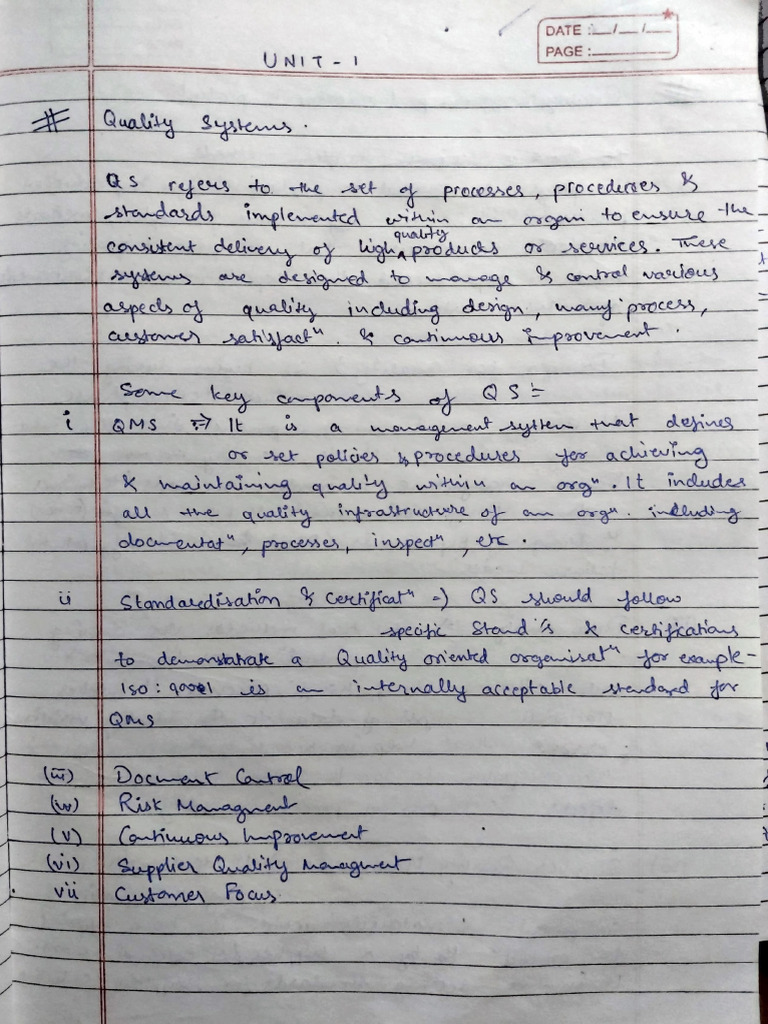 DATE :__/__/__
PAGE :______
UNIT - 1
# Quality Systems.
QS refers to the set of processes, procedures &
standards implemented within an organi to ensure the
consistent delivery of high quality products or services. These
systems are designed to manage & control various
aspects of quality including design, manf process,
customer satisfactⁿ. & continuous improvement.
Some key components of QS :-
i QMS => It is a management system that defines
or set policies & procedures for achieving
& maintaining quality within an orgⁿ. It includes
all the quality infrastructure of an orgⁿ. including
documentatⁿ, processes, inspectⁿ, etc.
ii Standardisation & Certificatⁿ => QS should follow
specific Stand's & certifications
to demonstrate a Quality oriented organisatⁿ for example -
ISO : 9001 is an internally acceptable standard for
QMS
(iii) Document Control
(iv) Risk Managment
(v) Continuous Improvement
(vi) Supplier Quality Managment
vii Customer Focus.